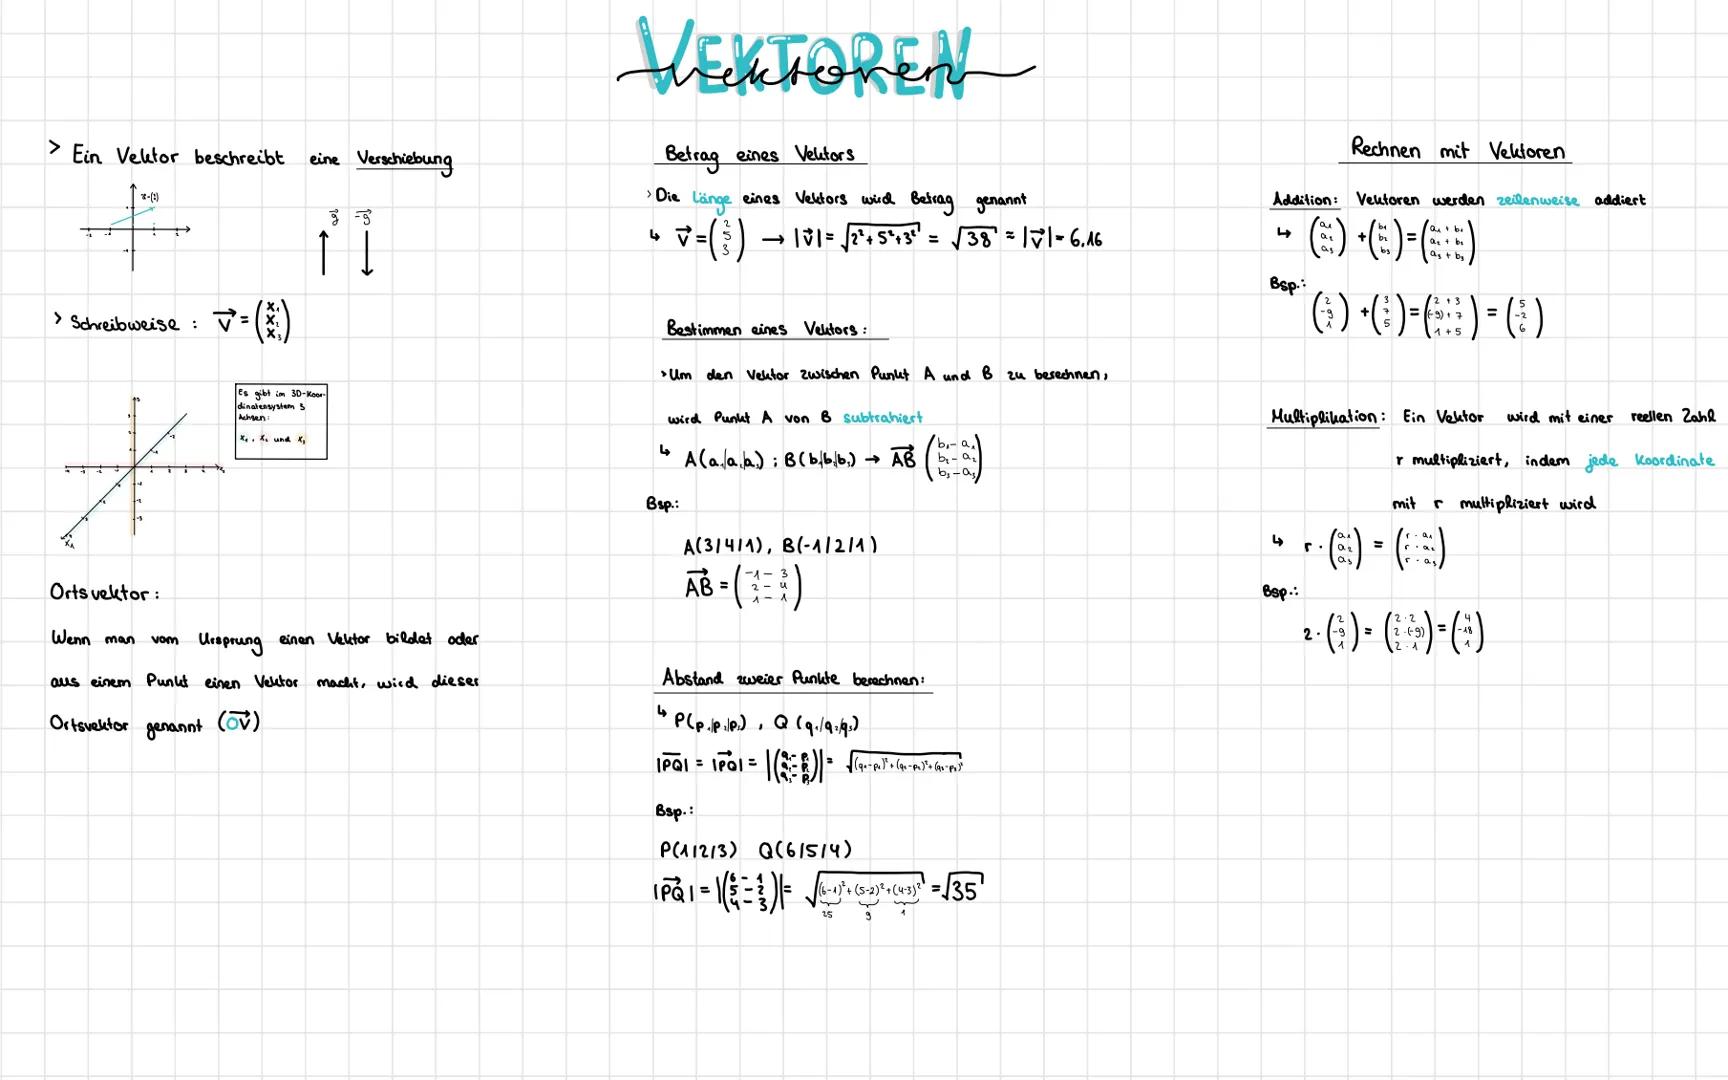 VEKTOREN
Vektoren
> Ein Vektor beschreibt eine Verschiebung
> Schreibweise : v⃗ = (x₁ x₂ x₃)
Es gibt im 3D-Koor-
dinatensystem 3
Achsen:
x₁, x₂ und x₃
x₁
Ortsvektor:
Wenn man vom Ursprung einen Vektor bildet oder
aus einem Punkt einen Vektor macht, wird dieser
Ortsvektor genannt (OV⃗)
Betrag eines Vektors
> Die Länge eines Vektors wird Betrag genannt
↳ v⃗ = (2 5 3) → |v⃗| = √2²+5²+3² = √38 ≈ |v⃗| = 6,16
Bestimmen eines Vektors:
> Um den Vektor zwischen Punkt A und B zu berechnen,
wird Punkt A von B subtrahiert
↳ A(a₁|a₂|a₃) ; B(b₁|b₂|b₃) → AB⃗ (b₁-a₁ b₂-a₂ b₃-a₃)
Bsp.:
A(3/4/1), B(-1/2/1)
AB⃗ = (-1-3 2-4 1-1)
Abstand zweier Punkte berechnen:
↳ P(p₁|p₂|p₃), Q(q₁/q₂/q₃)
|PQ| = |PQ⃗| = |(q₁-p₁ q₂-p₂ q₃-p₃)| = √(q₁-p₁)²+(q₂-p₂)²+(q₃-p₃)²
Bsp.:
P(1/2/3) Q(6/5/4)
|PQ⃗| = |(6-1 5-2 4-3)| = √(6-1)²+(5-2)²+(4-3)² = √35
25 9 1
Rechnen mit Vektoren
Addition: Vektoren werden zeilenweise addiert
↳ (a₁ a₂ a₃) + (b₁ b₂ b₃) = (a₁+b₁ a₂+b₂ a₃+b₃)
Bsp.:
(2 -9 1) + (3 7 5) = (2+3 (-9)+7 1+5) = (5 -2 6)
Multiplikation: Ein Vektor wird mit einer reellen Zahl
r multipliziert, indem jede Koordinate
mit r multipliziert wird
↳ r · (a₁ a₂ a₃) = (r·a₁ r·a₂ r·a₃)
Bsp.:
2 · (2 -9 1) = (2·2 2·(-9) 2·1) = (4 -18 1)